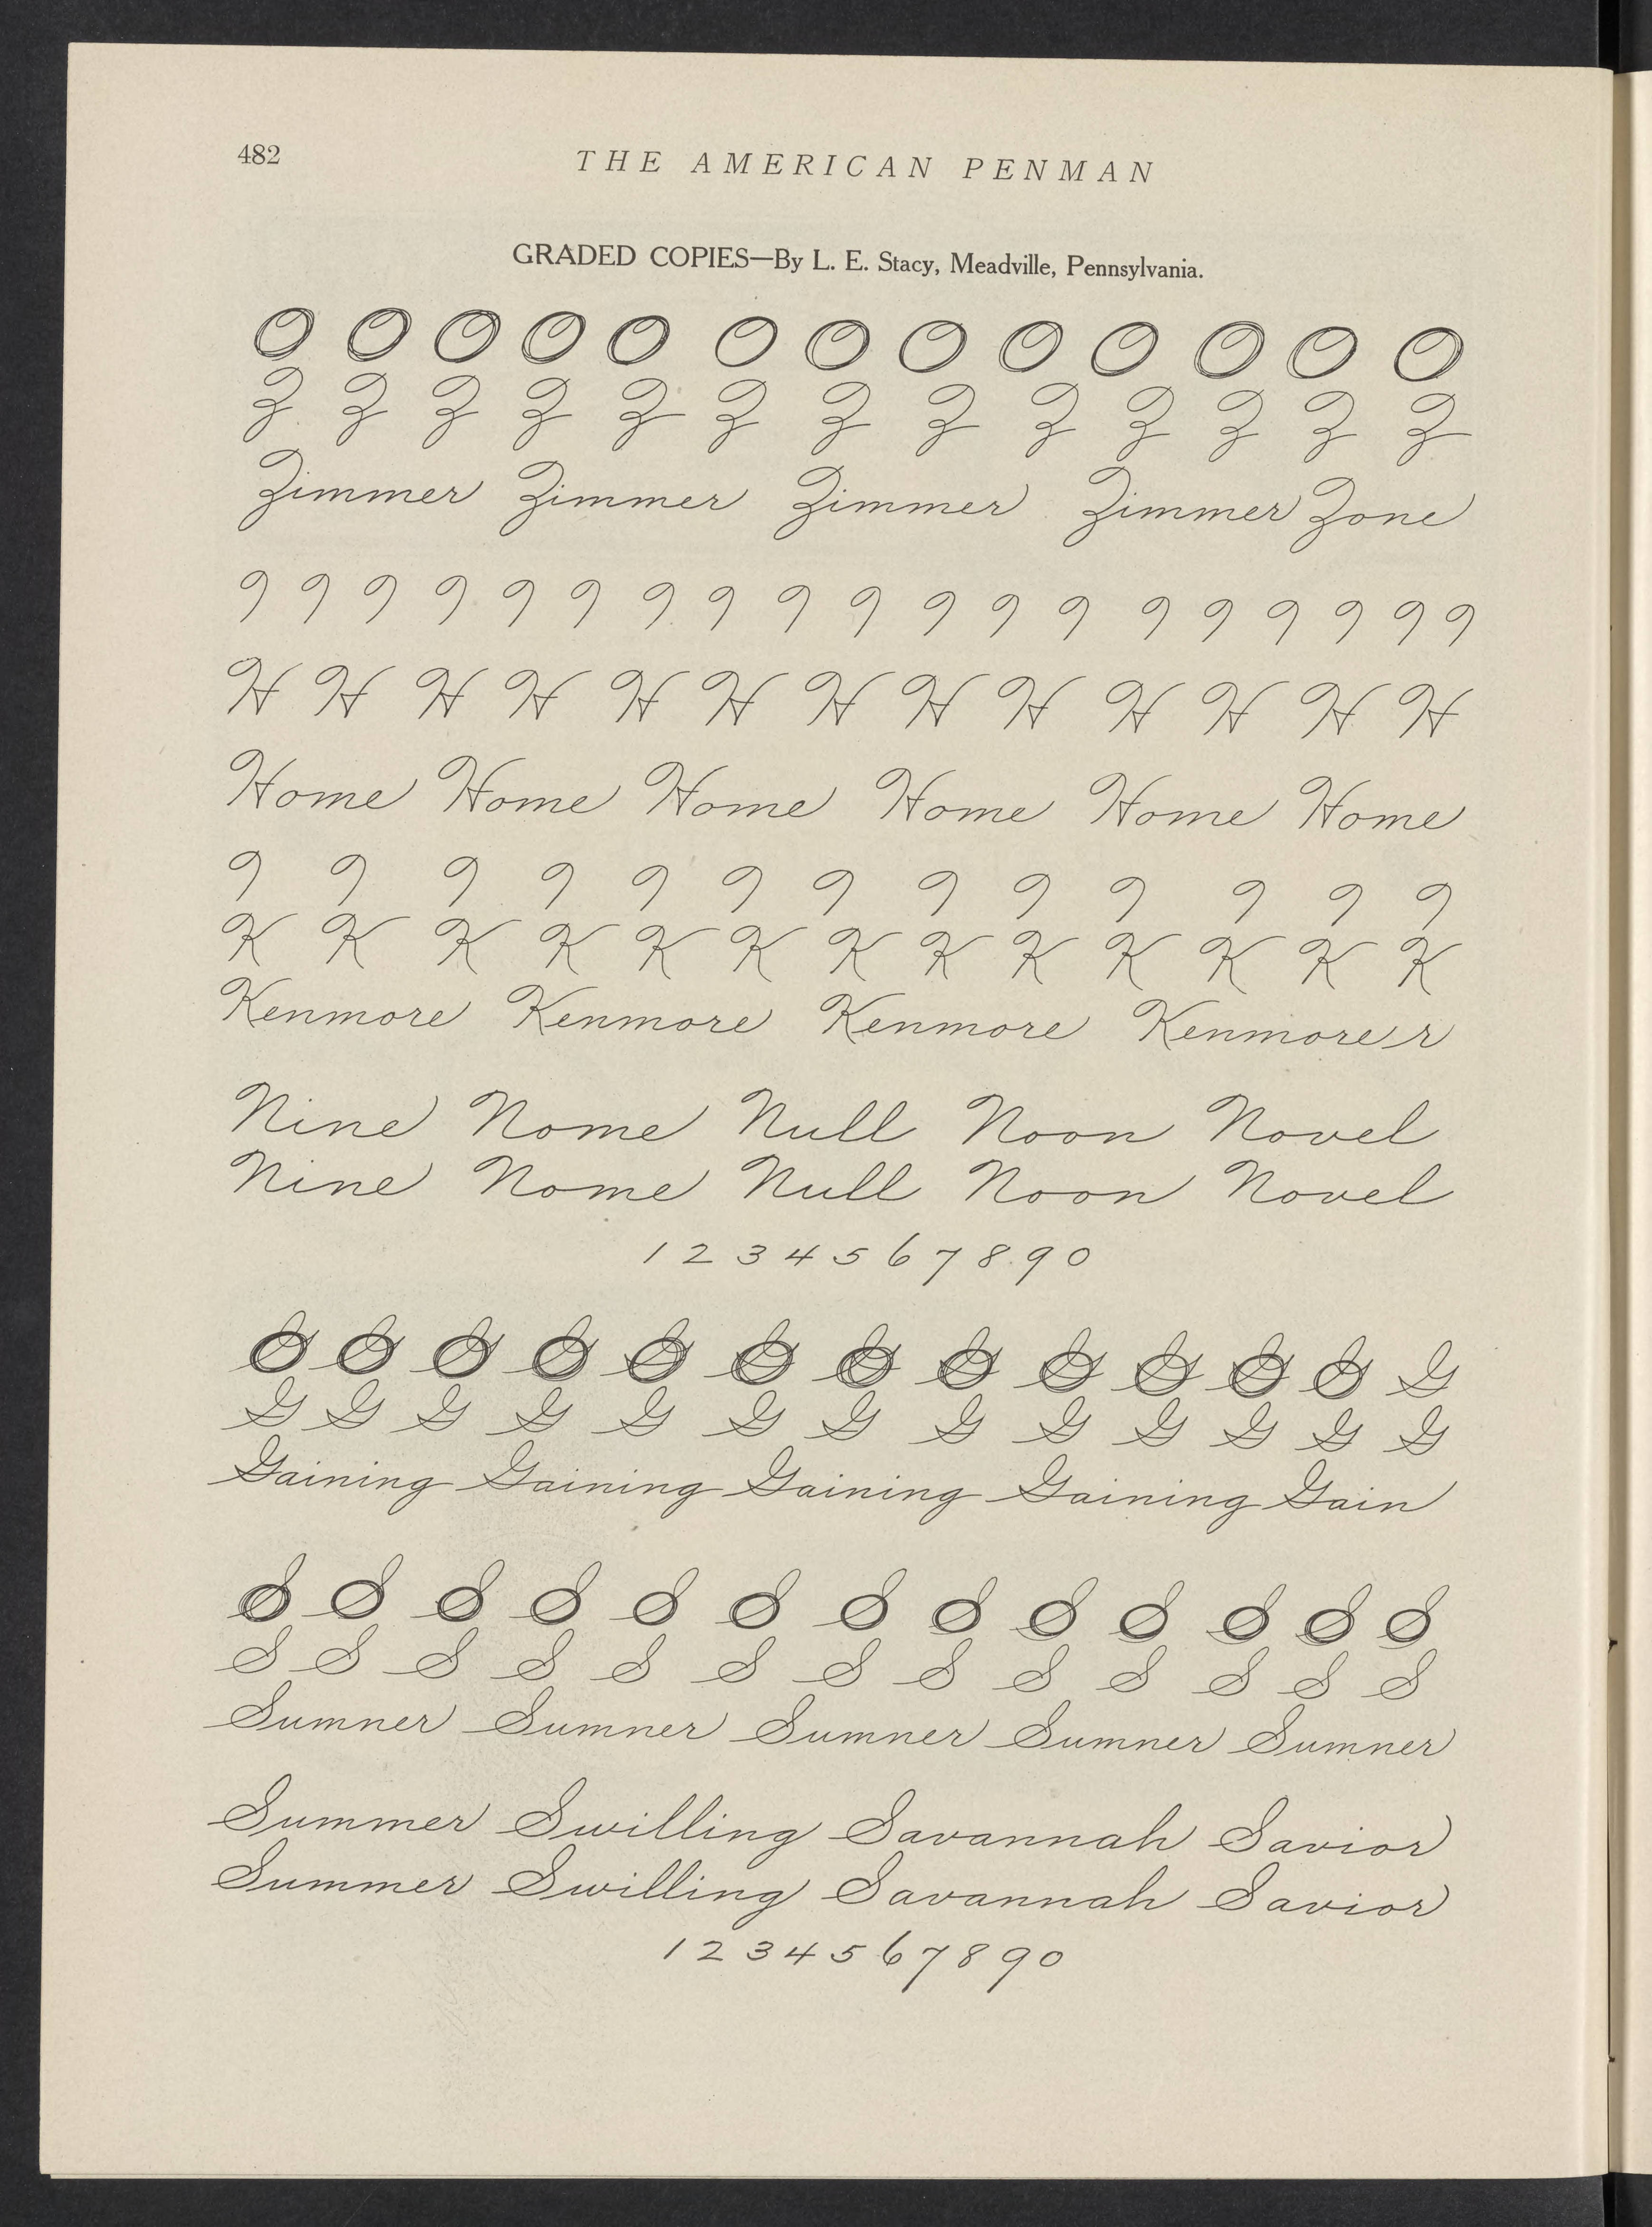 482
THE AMERICAN PENMAN
GRADED COPIES—By L. E. Stacy, Meadville, Pennsylvania.
O O O O O O O O O O O O O
Z Z Z Z Z Z Z Z Z Z Z Z Z
Zimmer Zimmer Zimmer Zimmer Zone
9 9 9 9 9 9 9 9 9 9 9 9 9 9 9 9 9 9 9
H H H H H H H H H H H H H
Home Home Home Home Home Home
9 9 9 9 9 9 9 9 9 9 9 9 9
K K K K K K K K K K K K K
Kenmore Kenmore Kenmore Kenmore r
Nine Nome Null Noon Novel
Nine Nome Null Noon Novel
1 2 3 4 5 6 7 8 9 0
G G G G G G G G G G G G G
G G G G G G G G G G G G G
Gaining Gaining Gaining Gaining Gain
S S S S S S S S S S S S S
S S S S S S S S S S S S S
Sumner Sumner Sumner Sumner Sumner
Summer Swilling Savannah Savior
Summer Swilling Savannah Savior
1 2 3 4 5 6 7 8 9 0